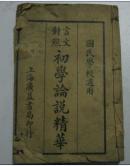 國民學校適用
言文
對照
初學論說精華
上海廣益書局印行